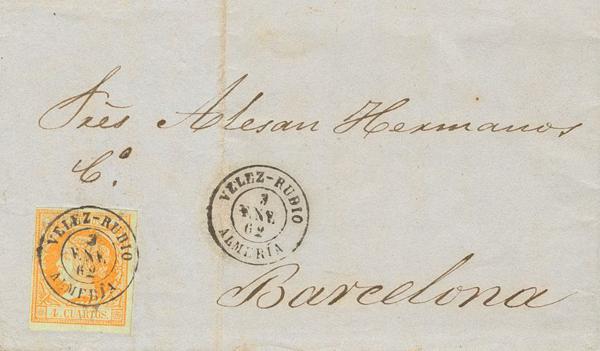 Sres Alesan Hermanos
C.º
VELEZ-RUBIO
3
ENE
62
ALMERÍA
VELEZ-RUBIO
3
ENE
62
ALMERÍA
4 CUARTOS
Barcelona